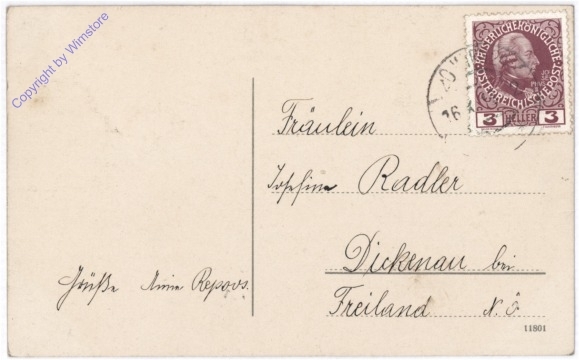 Copyright by Wimstore
KAISERLICHE KÖNIGLICHE
ÖSTERREICHISCHE POST
3 HELLER 3
16
Fräulein
Josefine Radler
Dickenau bei
Freiland N. Ö.
Grüße Repovs.
11801